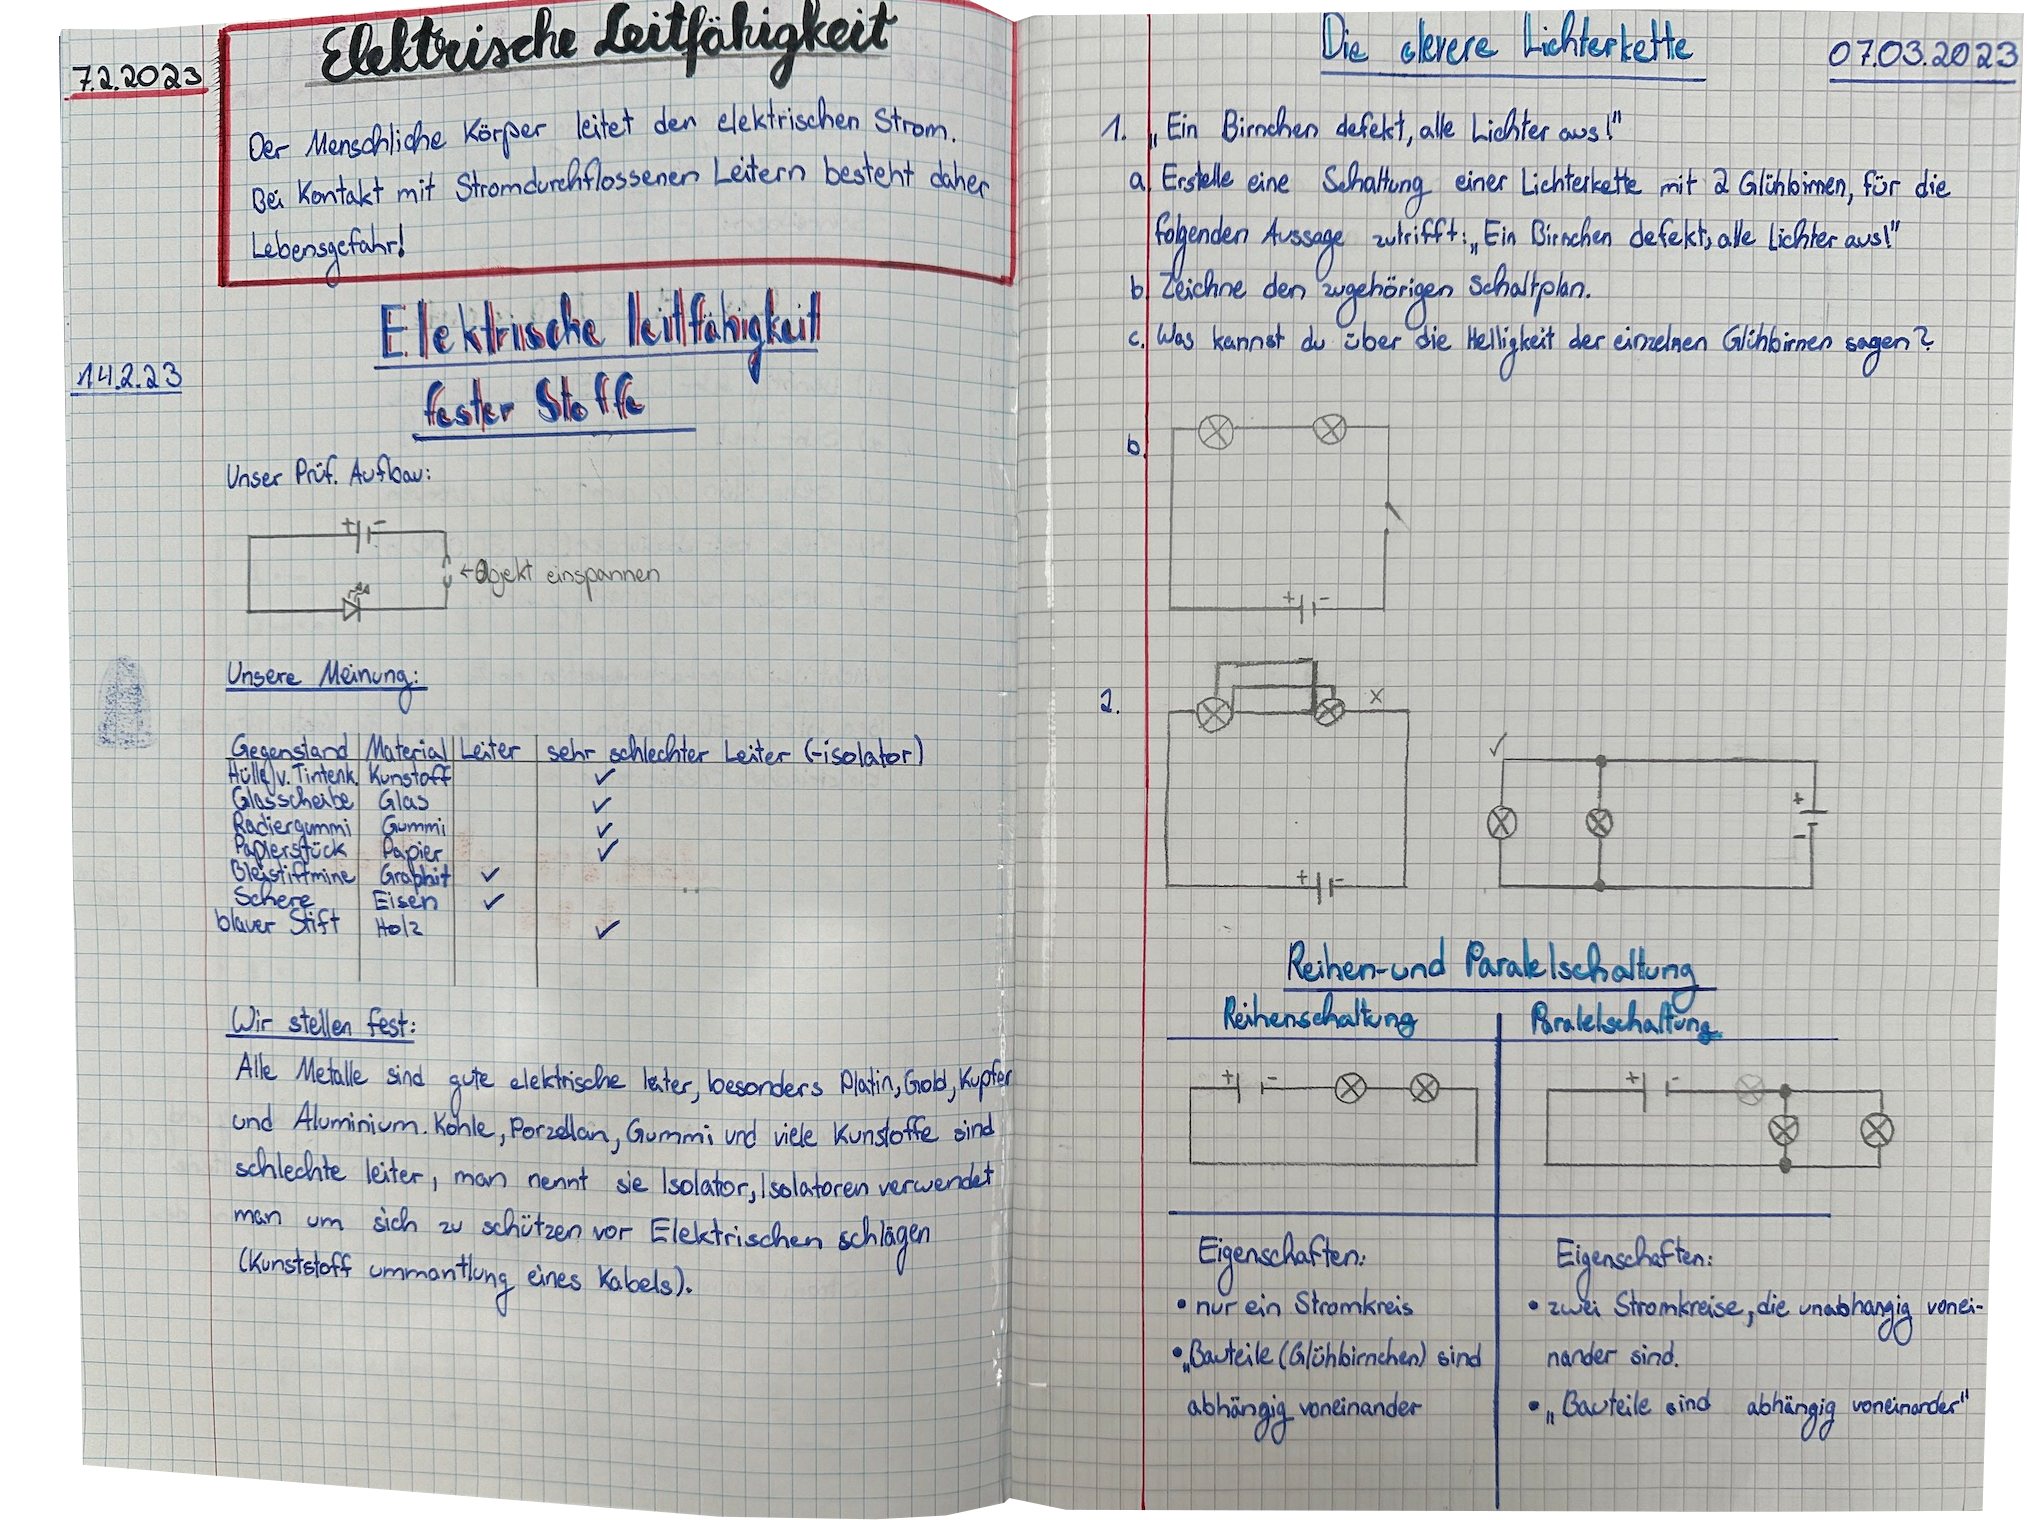 7.2.2023
Elektrische Leitfähigkeit
Der Menschliche Körper leitet den elektrischen Strom.
Bei Kontakt mit Stromdurchflossenen Leitern besteht daher
Lebensgefahr!
14.2.23
Elektrische leitfähigkeit
fester Stoffe
Unser Prüf. Aufbau:
+ -
←Objekt einspannen
Unsere Meinung:
Gegenstand Material Leiter sehr schlechter Leiter (-isolator)
Hülle v. Tintenk. Kunstoff ✓
Glasscheibe Glas ✓
Radiergummi Gummi ✓
Papierstück Papier ✓
Bleistiftmine Graphit ✓
Schere Eisen ✓
blauer Stift Holz ✓
Wir stellen fest:
Alle Metalle sind gute elektrische leiter, besonders Platin, Gold, Kupfer
und Aluminium. Kohle, Porzellan, Gummi und viele Kunstoffe sind
schlechte leiter, man nennt sie Isolator, Isolatoren verwendet
man um sich zu schützen vor Elektrischen schlägen
(Kunststoff ummantlung eines Kabels).
Die clevere Lichterkette
07.03.2023
1. „Ein Birnchen defekt, alle Lichter aus!"
a) Erstelle eine Schaltung einer Lichterkette mit 2 Glühbirnen, für die
folgenden Aussage zutrifft: „Ein Birnchen defekt, alle Lichter aus!"
b) Zeichne den zugehörigen Schaltplan.
c. Was kannst du über die Helligkeit der einzelnen Glühbirnen sagen?
b.
+ -
2.
x
+ -
✓
+
-
Reihen-und Paralelschaltung
Reihenschaltung
Paralelschaltung
+ -
+ -
Eigenschaften:
• nur ein Stromkreis
• „Bauteile (Glühbirnchen) sind
abhängig voneinander
Eigenschaften:
• zwei Stromkreise, die unabhangig vonei-
nander sind.
• „Bauteile sind abhängig voneinander"